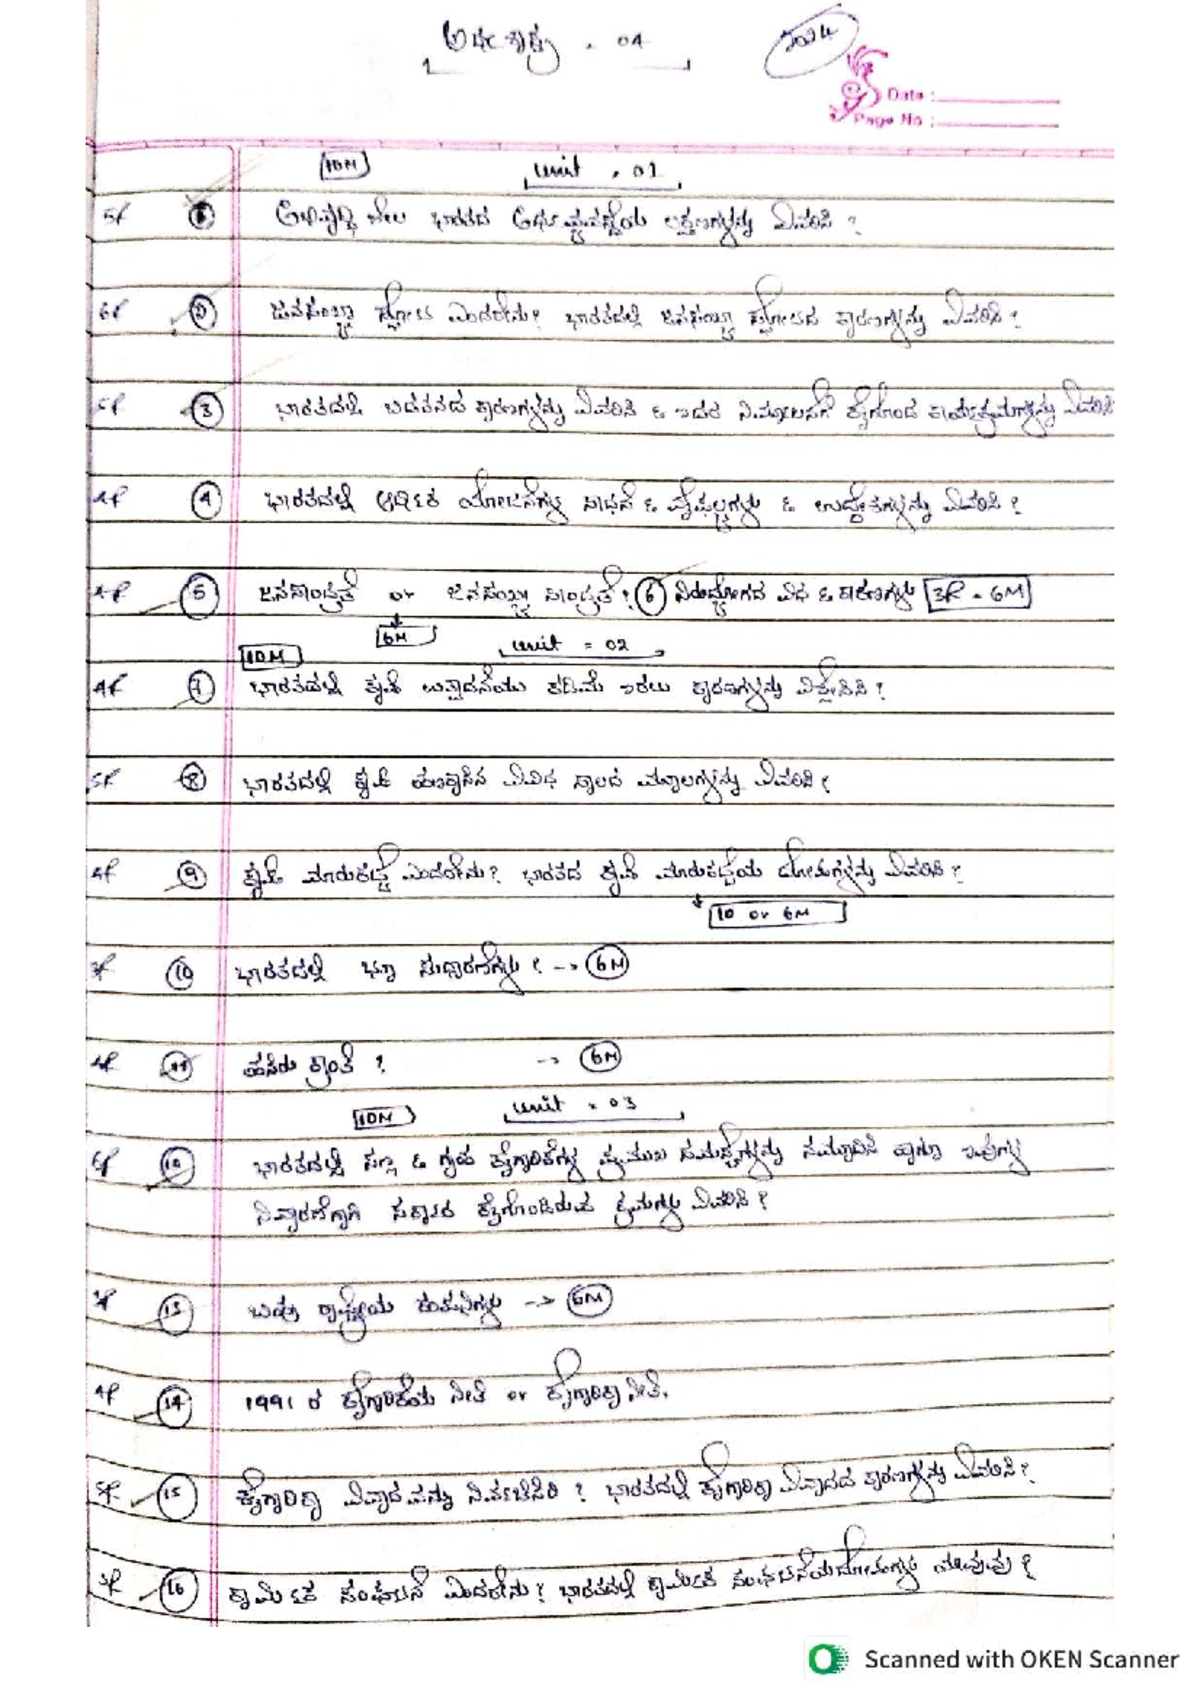 ಅರ್ಥಶಾಸ್ತ್ರ - 04 2024
Date :
Page No :
10M unit - 01
5P 1 ಅಭಿವೃದ್ಧಿ ಶೀಲ ಭಾರತದ ಅರ್ಥವ್ಯವಸ್ಥೆಯ ಲಕ್ಷಣಗಳನ್ನು ವಿವರಿಸಿ ?
6P 2 ಜನಸಂಖ್ಯಾ ಸ್ಫೋಟ ಎಂದರೇನು? ಭಾರತದಲ್ಲಿ ಜನಸಂಖ್ಯಾ ಸ್ಫೋಟದ ಕಾರಣಗಳನ್ನು ವಿವರಿಸಿ ?
5P 3 ಭಾರತದಲ್ಲಿ ಬಡತನದ ಕಾರಣಗಳನ್ನು ವಿವರಿಸಿ & ಇದರ ನಿರ್ಮೂಲನೆಗೆ ಕೈಗೊಂಡ ಕಾರ್ಯಕ್ರಮಗಳನ್ನು ವಿವರಿಸಿ
4P 4 ಭಾರತದಲ್ಲಿ ಆರ್ಥಿಕ ಯೋಜನೆಗಳ ಸಾಧನೆ & ವೈಫಲ್ಯಗಳು & ಉದ್ದೇಶಗಳನ್ನು ವಿವರಿಸಿ ?
4P 5 ಜನಸಾಂದ್ರತೆ or ಜನಸಂಖ್ಯಾ ಸಾಂದ್ರತೆ ? 6 ನಿರುದ್ಯೋಗದ ವಿಧ & ಕಾರಣಗಳು 3P - 6M
6M unit = 02
10M
4P 7 ಭಾರತದಲ್ಲಿ ಕೃಷಿ ಉತ್ಪಾದನೆಯು ಕಡಿಮೆ ಇರಲು ಕಾರಣಗಳನ್ನು ವಿಶ್ಲೇಷಿಸಿ ?
5P 8 ಭಾರತದಲ್ಲಿ ಕೃಷಿ ಹಣಕಾಸಿನ ವಿವಿಧ ಸಾಲದ ಮೂಲಗಳನ್ನು ವಿವರಿಸಿ ?
4P 9 ಕೃಷಿ ಮಾರುಕಟ್ಟೆ ಎಂದರೇನು? ಭಾರತದ ಕೃಷಿ ಮಾರುಕಟ್ಟೆಯ ದೋಷಗಳನ್ನು ವಿವರಿಸಿ ?
10 or 6M
3P 10 ಭಾರತದಲ್ಲಿ ಭೂ ಸುಧಾರಣೆಗಳು ? -> 6M
4P 11 ಹಸಿರು ಕ್ರಾಂತಿ ? -> 6M
10M unit - 03
6P 12 ಭಾರತದಲ್ಲಿ ಸಣ್ಣ & ಗೃಹ ಕೈಗಾರಿಕೆಗಳ ಪ್ರಮುಖ ಸಮಸ್ಯೆಗಳನ್ನು ಹಾಗೂ ಇವುಗಳ
ನಿವಾರಣೆಗಾಗಿ ಸರ್ಕಾರ ಕೈಗೊಂಡಿರುವ ಕ್ರಮಗಳು ವಿವರಿಸಿ ?
3P 13 ಬಹು ರಾಷ್ಟ್ರೀಯ ಕಂಪನಿಗಳು -> 6M
4P 14 1991 ರ ಕೈಗಾರಿಕೆಯ ನೀತಿ or ಕೈಗಾರಿಕಾ ನೀತಿ.
5P 15 ಕೈಗಾರಿಕಾ ವಿವಾದವನ್ನು ನಿರ್ವಚಿಸಿರಿ ? ಭಾರತದಲ್ಲಿ ಕೈಗಾರಿಕಾ ವಿವಾದದ ಕಾರಣಗಳನ್ನು ವಿವರಿಸಿ ?
3P 16 ಕಾರ್ಮಿಕ ಸಂಘಟನೆ ಎಂದರೇನು? ಭಾರತದಲ್ಲಿ ಕಾರ್ಮಿಕ ಸಂಘಟನೆಯ ದೋಷಗಳು ಯಾವುವು ?
Scanned with OKEN Scanner